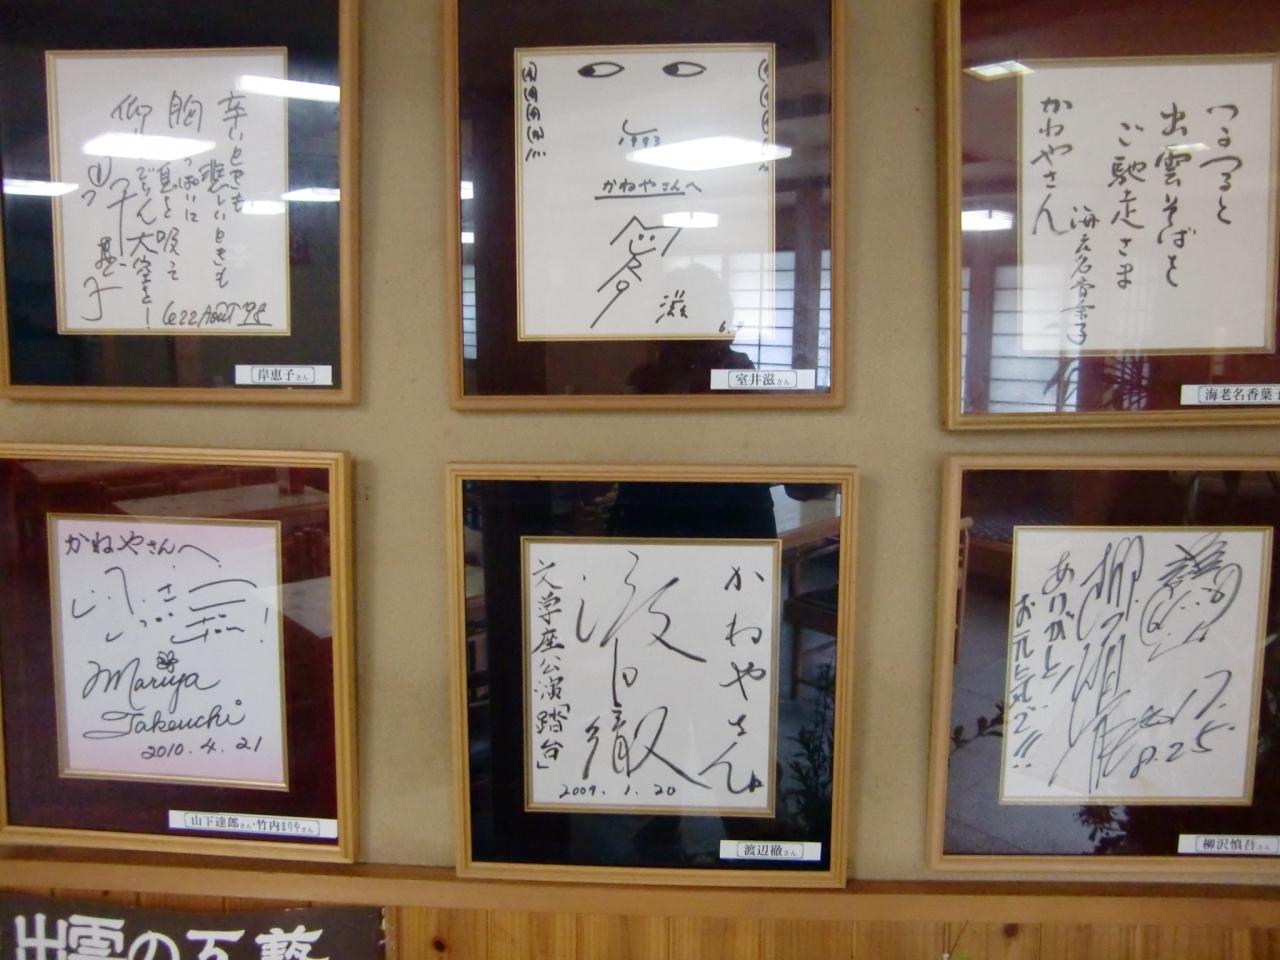 辛いときも
悲しいときも
胸いっぱいに
息を吸って
大空を!
岸恵子
le 22 Août '98
岸恵子さん
1993
かねやさんへ
滋
室井滋さん
つるつると
出雲そばを
ご馳走さま
かねやさん
海老名香葉子
海老名香葉子
かねやさんへ
Mariya
Takeuchi
2010.4.21
山下達郎さん・竹内まりやさん
かねやさん
渡辺徹
文学座公演「踏台」
2009.1.20
渡辺徹さん
ありがとう
お元気で!!
8.25
柳沢慎吾さん
出雲の